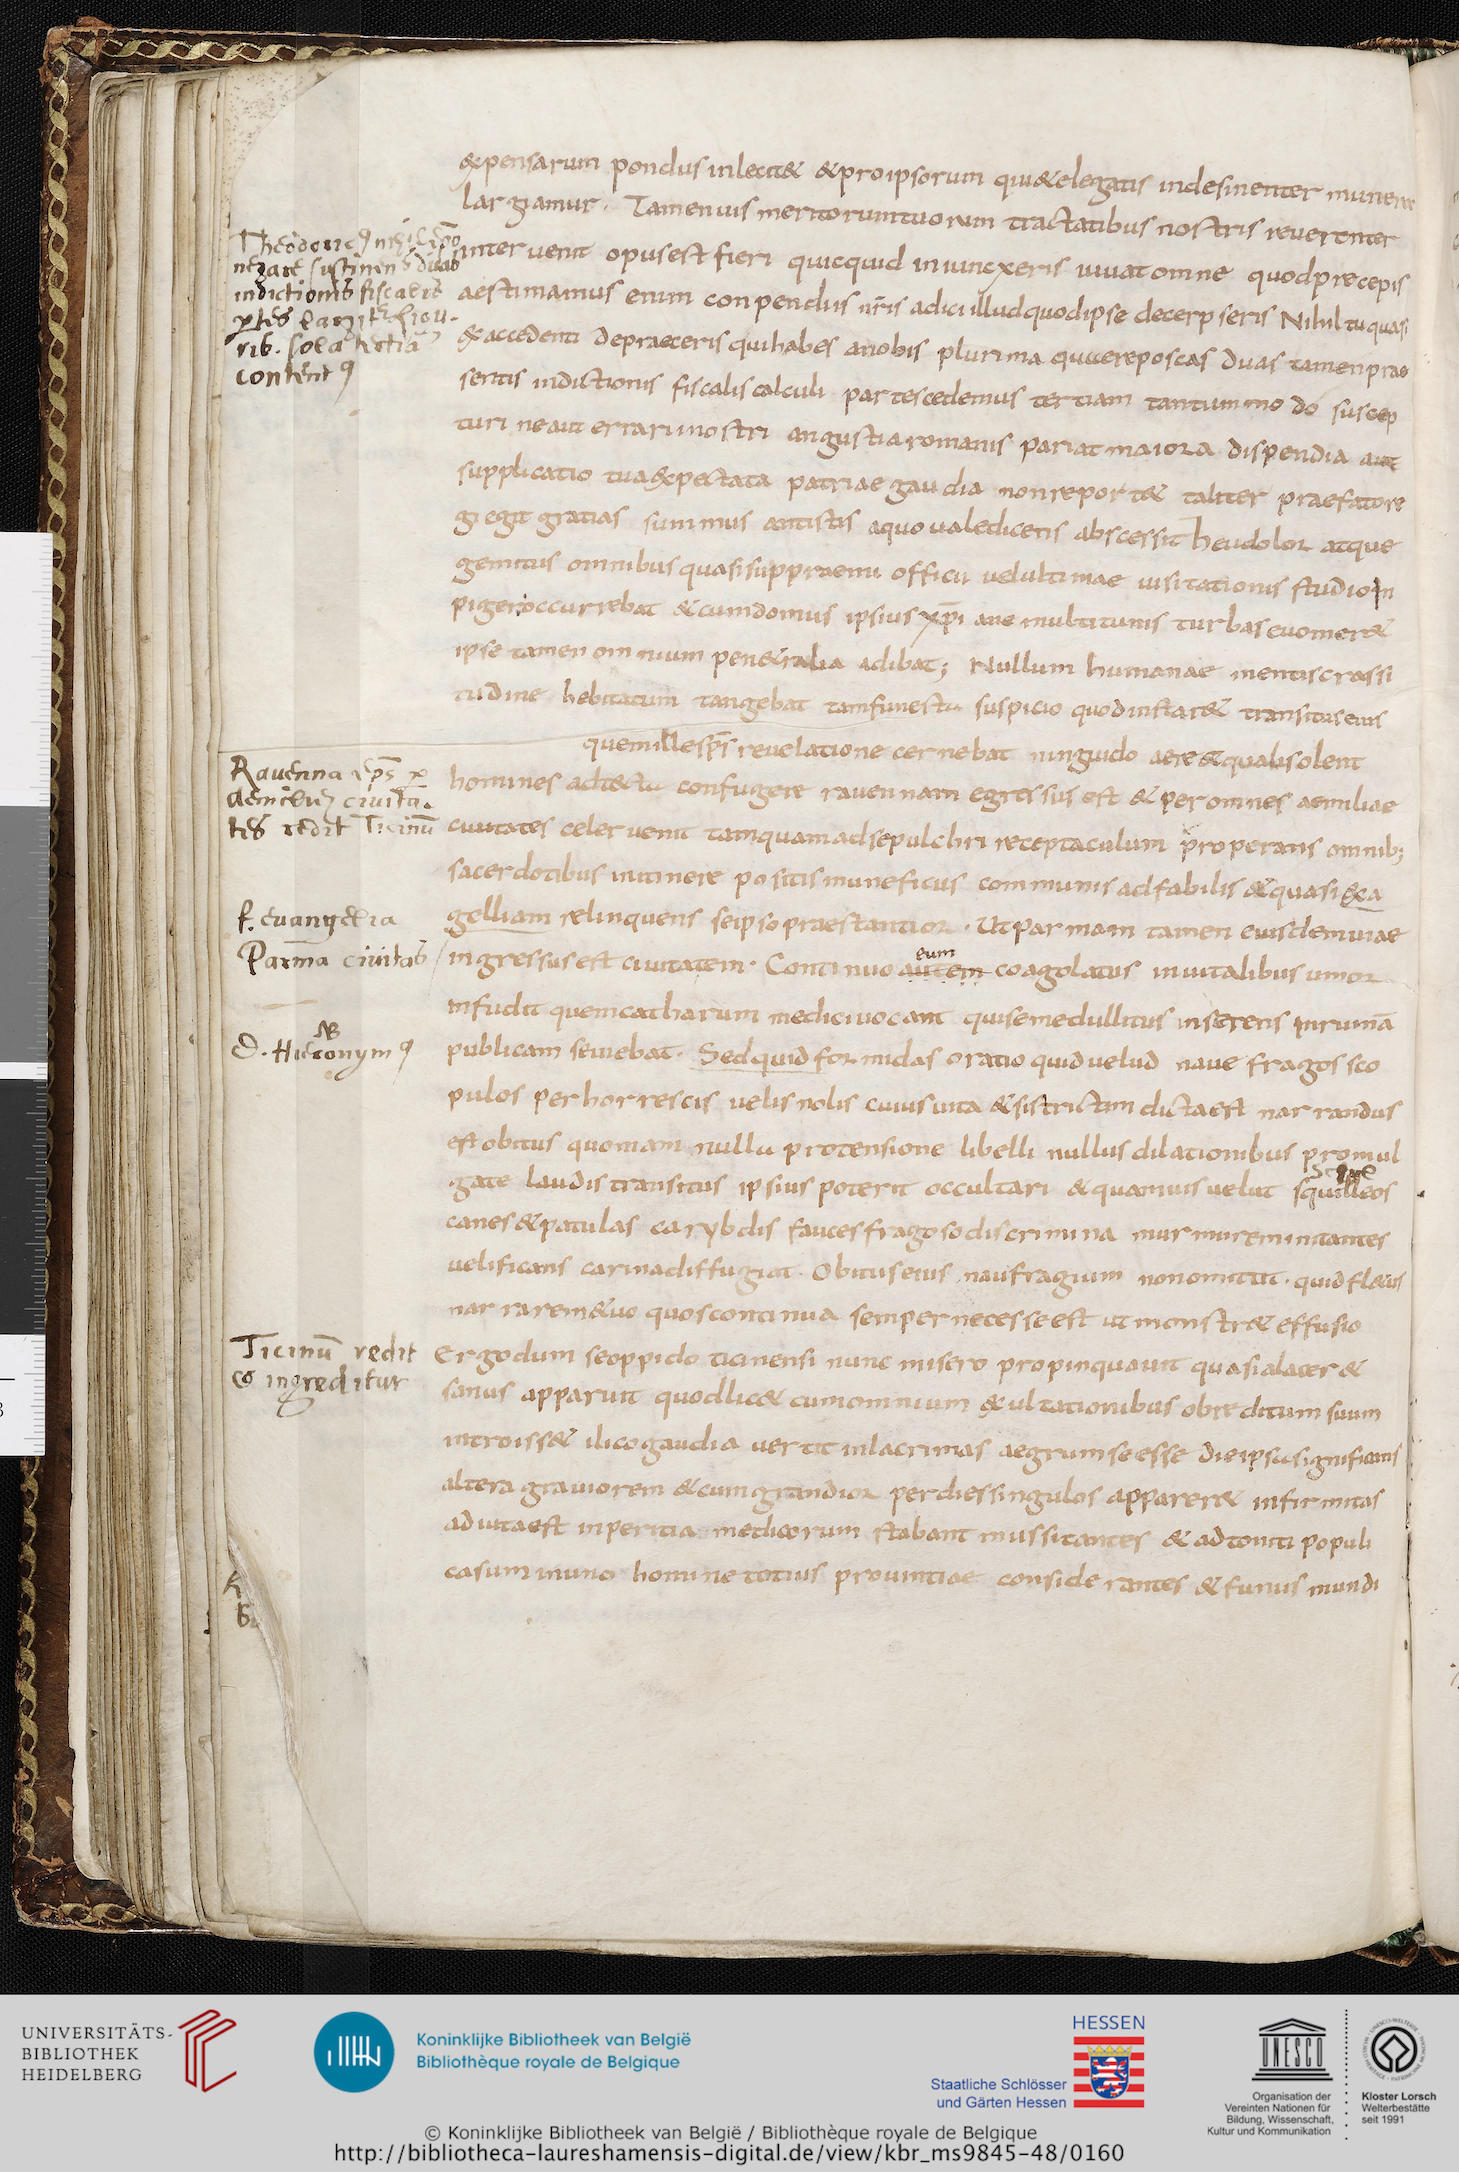 &pensarum pondus inlecit& &proipsorum qui&elegatis indesinenter munera
largiamur. Tamen uis meritorum tuorum tractatibus nostris reuerenter
interuenit opusest fieri quicquid iniuncxeris uiuat omne quodprecepis
aestimamus enim conpendiis nr̄is adici illud quodipse decerpseris Nihil tu quasi
&accedenti depraeceris quihabes anobis plurima quae reposcas duas tamen prae
sentis indictionis fiscalis calculi partescedemus tertiam tantummodo suscep
turi neaut errarii nostri angustia romanis pariat maiora dispendia aut
supplicatio tua&pectata patriae gaudia nonreport& taliter praefatore
gi egit gratias summus antistis aquo ualedicens abscessit heudolor atque
gemitus omnibus quasisuppraemi officii uelultimae uisitationis studio in
piger occurrebat &cumdomus ipsius xp̄i ane multitumis turbas euomer&
ipse tamen omnium pen&ralia adibat; Nullum humanae mentiscrassi
tudine hebitatum tangebat tamfunesta suspicio quodinstar& transitus eius
quemillesp̄s reuelatione cernebat ninguido aere &qualisolent
homines adt&ta confugere rauennam egressus est & per omnes aemiliae
ciuitates celer uenit tamquamadsepulchri receptaculum properans omnib;
sacerdotibus initinere positis muneficus communis adfabilis &quasi &a
gelliam relinquens seipso praestantior. Ut parmam tamen eiusdemuiae
ingressusest ciuitatem. Continuo autem coagolatus inuitalibus umor
eum
infudit quemcatharum mediciuocant quisemedullitus inserens inruinā
publicam seuiebat. Sedquid formidas oratio quiduelud naue fragos sco
pulos perhorrescis uelis nolis cuiusuita &sistrictim dictaest narrandus
est obitus quoniam nulla protensione libelli nullus dilationibus promul
gate laudis transitus ipsius poterit occultari &quamuis uelut squilleos
canes &patulas carybdis fauces fragoso discrimina murmureminitantes
uelificans carinadiffugiat. Obitus eius naufragium nonomittit. quid fl&us
narrarem&uo quoscontinua sempernecesseest ut monstr& effusio
Ergodum seoppido ticinensi nunc misero propinquauit quasialacer&
sanus apparuit quodlic& cumomnium &ultationibus obreditum suum
introiss& ilicogaudia uertit inlacrimas aegrumseesse dieipsasignificans
altera grauiorem &cumgrandior perdiessingulos apparer& infirmitas
adiutaest inperitia medicorum stabant mussitantes & adtoniti populi
casum inuno homine totius prouintiae considerantes &funus mundi
indictionis fiscalis
content9
Rauenna
ciuita.
tes redit Ticinū
f. euangelia
Parma ciuitas
NB
D. Hieronym9
Ticinū redit
& ingreditur
UNIVERSITÄTS-
BIBLIOTHEK
HEIDELBERG
Koninklijke Bibliotheek van België
Bibliothèque royale de Belgique
HESSEN
Staatliche Schlösser
und Gärten Hessen
UNESCO
Organisation der
Vereinten Nationen für
Bildung, Wissenschaft,
Kultur und Kommunikation
Kloster Lorsch
Welterbestätte
seit 1991
© Koninklijke Bibliotheek van België / Bibliothèque royale de Belgique
http://bibliotheca-laureshamensis-digital.de/view/kbr_ms9845-48/0160